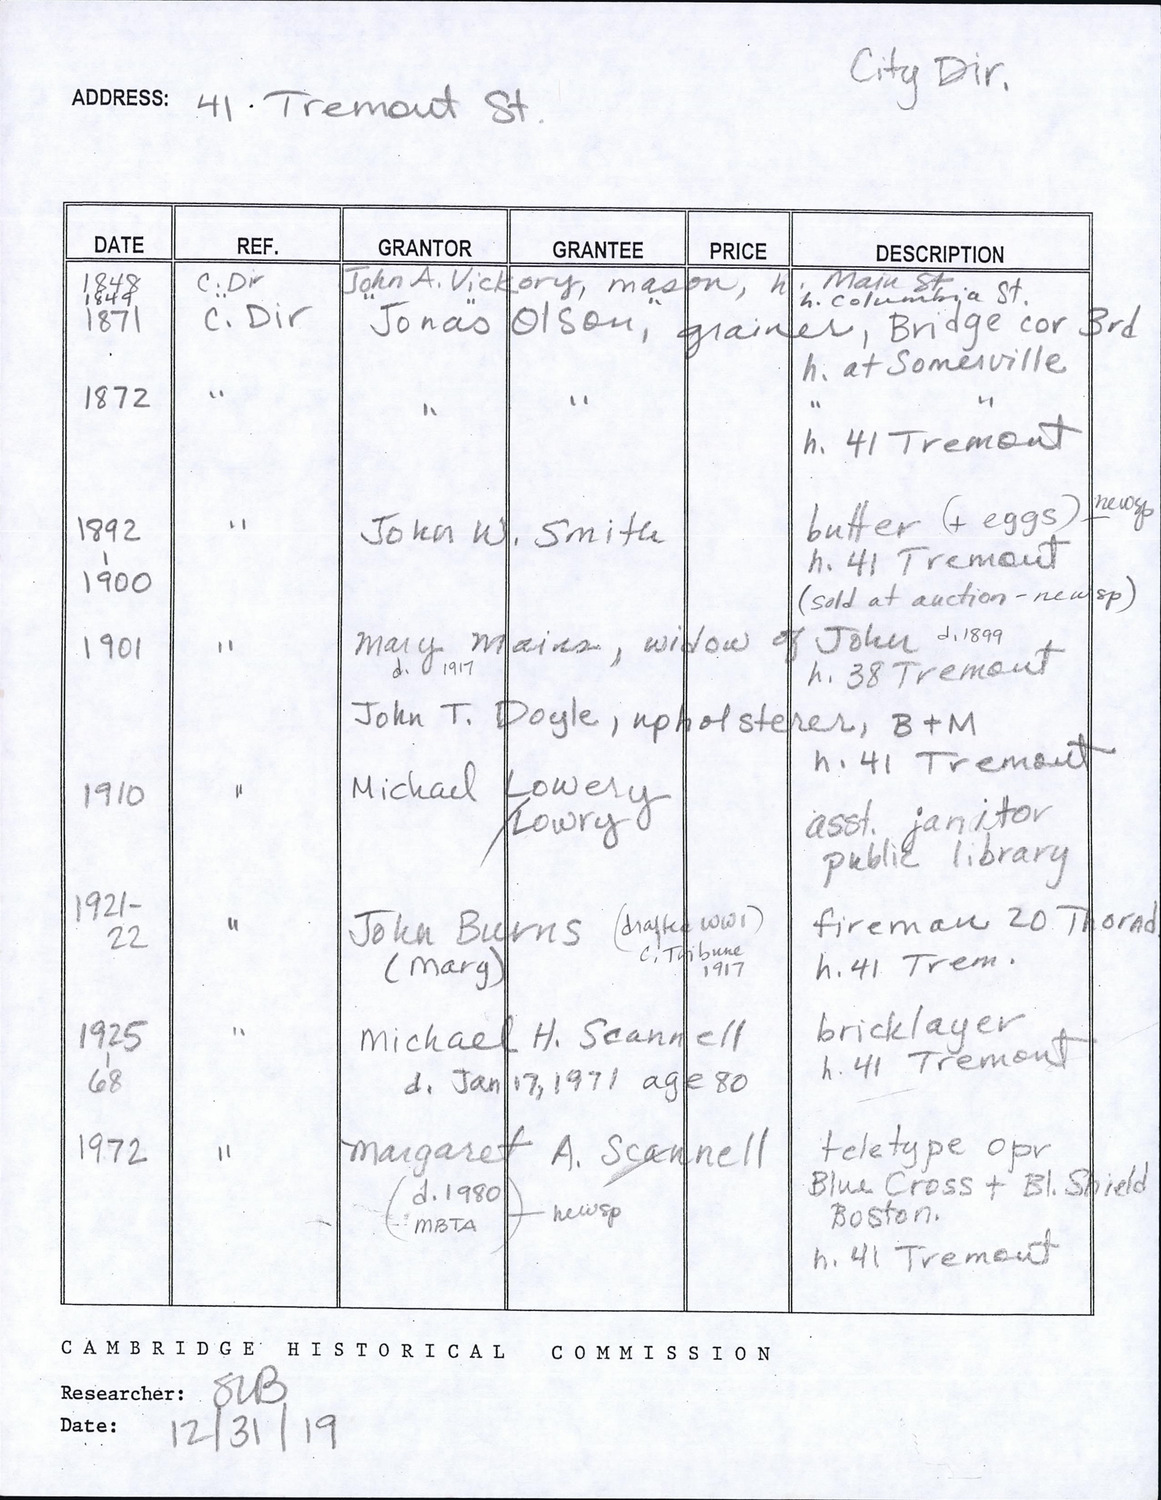 City Dir.
ADDRESS: 41 Tremont St.
DATE REF. GRANTOR GRANTEE PRICE DESCRIPTION
1848 C. Dir John A. Vickory, mason, h. Main St
1849 " " " h. Columbia St.
1871 C. Dir Jonas Olson, grainer, Bridge cor 3rd
h. at Somerville
1872 " " " " "
h. 41 Tremont
1892 " John W. Smith butter (+ eggs) - newsp
h. 41 Tremont
1900 (sold at auction - newsp)
1901 " Mary Mains, widow of John d. 1899
d. 1917 h. 38 Tremont
John T. Doyle, upholsterer, B + M
h. 41 Tremont
1910 " Michael Lowery
/Lowry asst. janitor
public library
1921-
22 " John Burns (drafted WW1) fireman 20 Thornd
(Mary) C. Tribune 1917 h. 41 Trem.
1925 " Michael H. Scannell bricklayer
h. 41 Tremont
68 d. Jan 17, 1971 age 80
1972 " Margaret A. Scannell teletype opr
(d. 1980 Blue Cross + Bl. Shield
MBTA) - newsp Boston.
h. 41 Tremont
CAMBRIDGE HISTORICAL COMMISSION
Researcher:
Date: 12/31/19